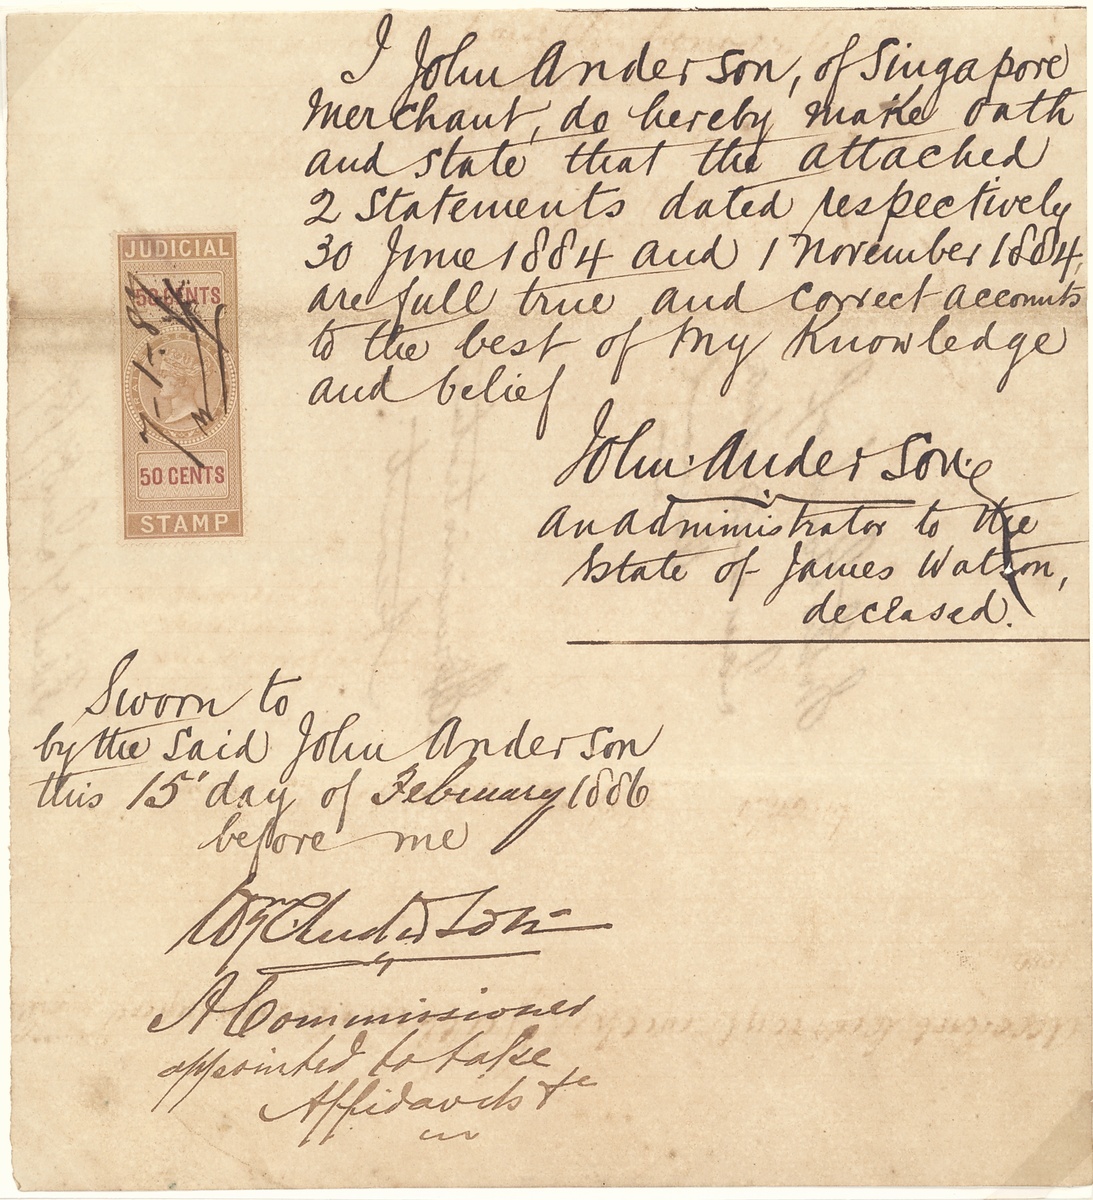 I John Anderson, of Singapore
Merchant, do hereby make oath
and state that the attached
2 Statements dated respectively
30 June 1884 and 1 November 1884,
are full true and correct accounts
to the best of my Knowledge
and belief
John Anderson
an administrator to the
Estate of James Watson,
deceased.
JUDICIAL
50 CENTS
50 CENTS
STAMP
Sworn to
by the said John Anderson
this 15 day of February 1886
before me
Anderson
A Commissioner
appointed to take
Affidavits &c